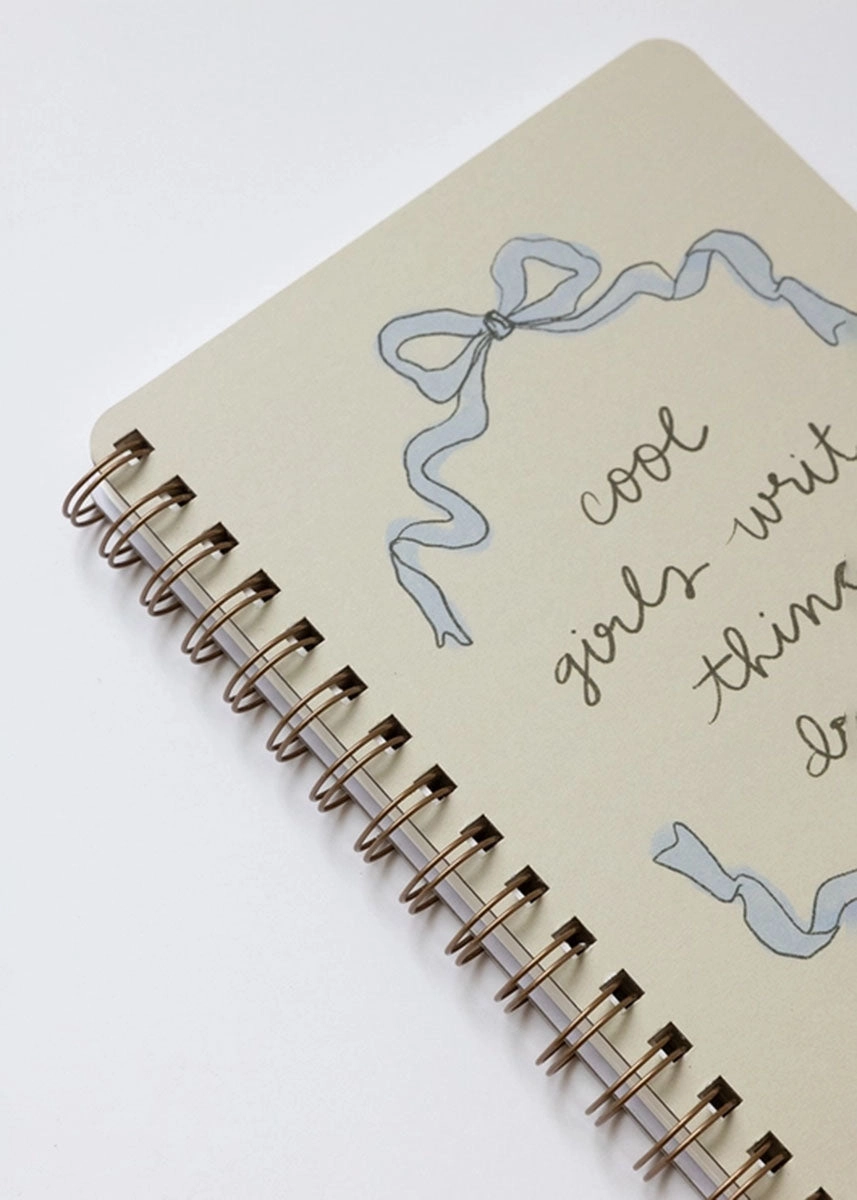 cool
girls writ
thing